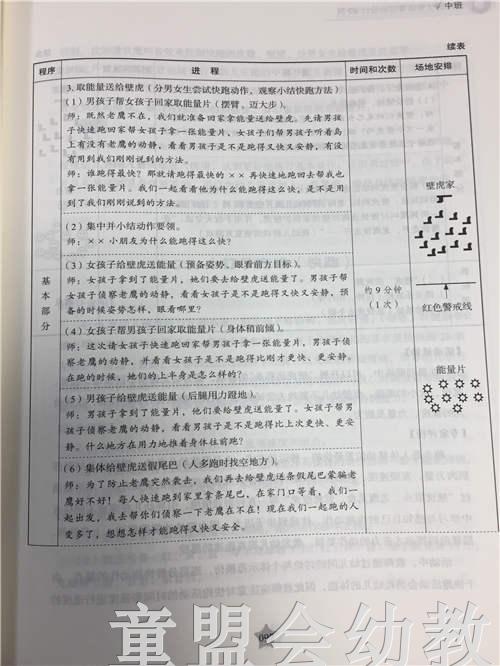 中班
续表
程序 进程 时间和次数 场地安排
3. 取能量送给壁虎（分男女生尝试快跑动作，观察小结快跑方法）
（1）男孩子帮女孩子回家取能量片（摆臂、迈大步）。
师：既然老鹰不在，我们就准备回家拿能量送给壁虎。先请男孩
子快速跑回家帮女孩子拿一张能量片，女孩子们帮男孩子听着岛
上有没有老鹰的动静，看看男孩子是不是跑得又快又安静，有没
有用到我们刚刚说到的方法。
师：谁跑得最快？那就请跑得最快的××再快速地跑回去帮我也
拿一张能量片。我们一起看看他为什么能跑得这么快，是不是用
到了我们刚刚说到的方法。
（2）集中并小结动作要领。
师：××小朋友为什么能跑得这么快？
（3）女孩子给壁虎送能量（预备姿势、眼看前方目标）。
师：女孩子拿到了能量片，她们要去给壁虎送能量了。男孩子帮
女孩子侦察老鹰的动静，看看女孩子是不是跑得又快又安静，预
备的时候姿势怎样，眼看哪里？
（4）女孩子帮男孩子回家取能量片（身体稍前倾）。
师：这次请女孩子快速跑回家帮男孩子拿一张能量片，男孩子侦
察老鹰的动静，并看看女孩子是不是跑得比刚才更快、更安静。
在跑的时候，她们的上半身是怎么样的？
（5）男孩子给壁虎送能量（后腿用力蹬地）。
师：男孩子拿到了能量片，他们要给壁虎送能量了。女孩子帮男
孩子侦察老鹰的动静，看看男孩子是不是跑得比上次更快、更安
静。什么地方在用力地推着身体往前跑？
（6）集体给壁虎送假尾巴（人多跑时找空地方）。
师：为了防止老鹰突然袭击，我们再去给壁虎送条假尾巴蒙骗老
鹰好不好！每人快速跑到家里拿条尾巴，在家门口等着，我们一
起出发，我去帮你们侦察一下老鹰在不在！现在我们一起跑的人
变多了，想想怎样才能跑得又快又安全。
基本部分
约9分钟
（1次）
壁虎家
红色警戒线
能量片
童盟会幼教